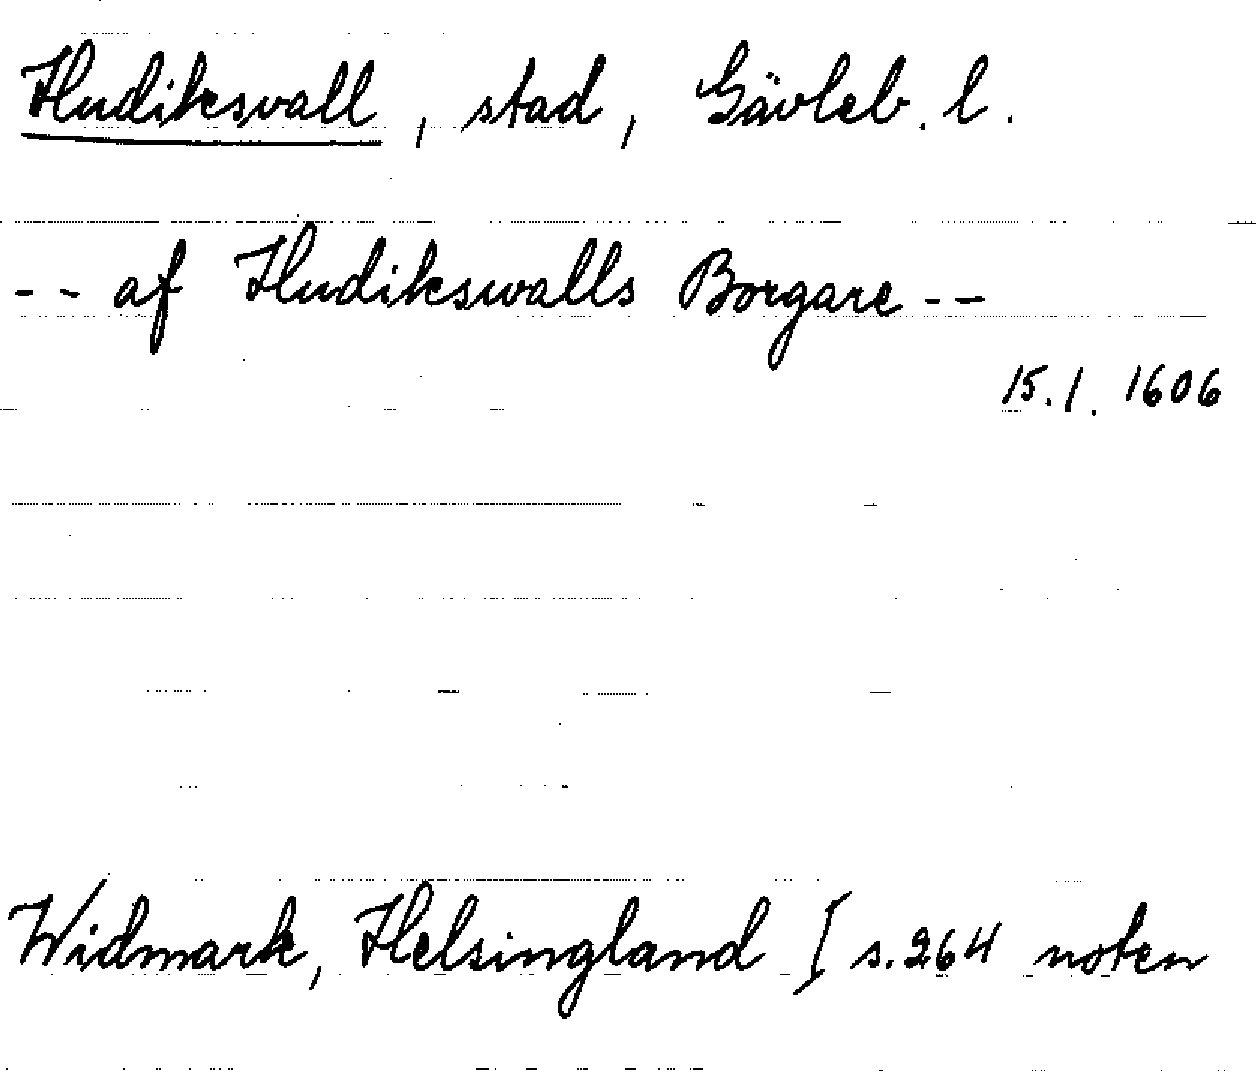 Hudiksvall, stad, Gävleb. l.
-- af Hudikswalls Borgare --
15.1. 1606
Widmark, Helsingland I s.264 noten